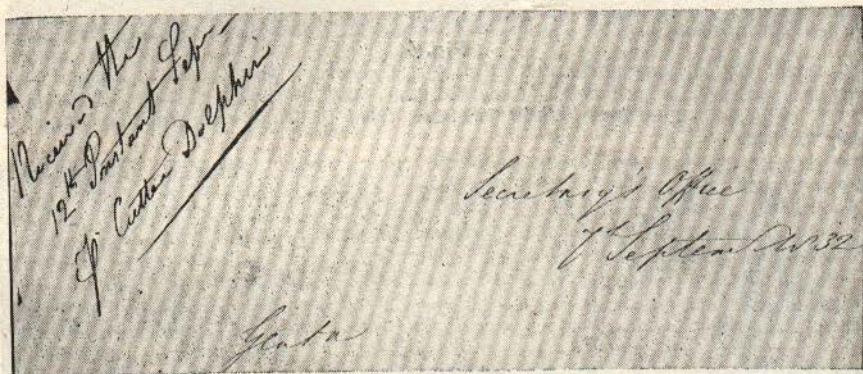 Received the
12th Instant Sepr
Cutter Dolphin
Secretary's Office
7th Septem 1832
Gentn